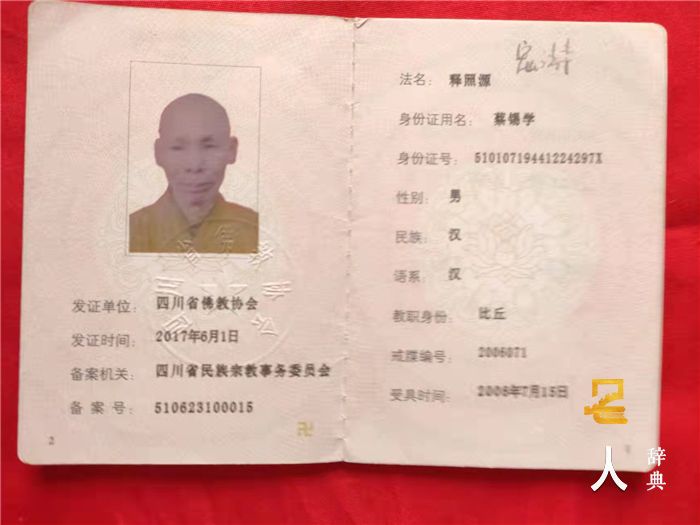 发证单位： 四川省佛教协会
发证时间： 2017年6月1日
备案机关： 四川省民族宗教事务委员会
备 案 号： 510623100015
2
法名： 释照源
身份证用名： 蔡锡学
身份证号： 51010719441224297X
性别： 男
民族： 汉
语系： 汉
教职身份： 比丘
戒牒编号： 2006071
受具时间： 2006年7月15日
人 辞典